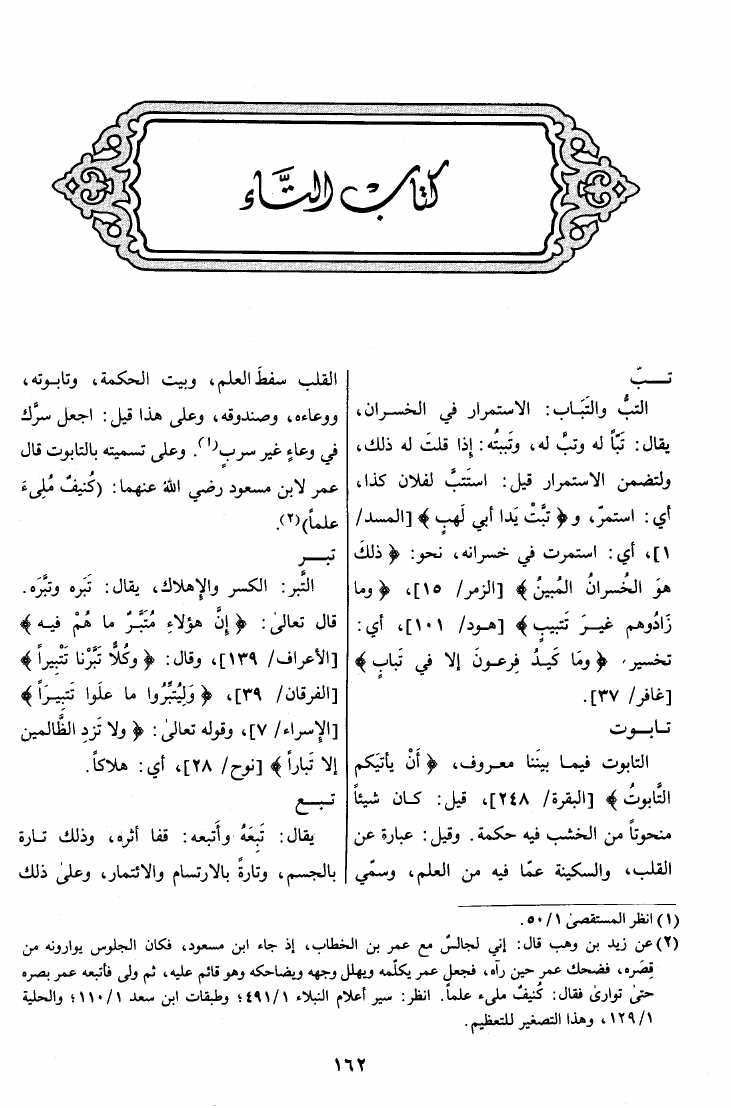 كتاب التَّاء
تــبّ
التبُّ والتَبَاب: الاستمرار في الخسران،
يقال: تَبّاً له وتبٌ له، وتَببتُه: إذا قلتَ له ذلك،
ولتضمن الاستمرار قيل: استَتبَّ لفلان كذا،
أي: استمرّ، و﴿ تَبَّتْ يَدا أبي لَهبٍ ﴾ [المسد/
١]، أي: استمرت في خسرانه، نحو: ﴿ ذلكَ
هوَ الخُسرانُ المُبينُ ﴾ [الزمر/ ١٥]، ﴿ وما
زَادُوهم غيــرَ تَتبيبٍ ﴾ [هـود/ ١٠١]، أي:
تخسير، ﴿ ومَا كَيـدُ فِرعـونَ إلا في تَبابٍ ﴾
[غافر/ ٣٧].
تـابـــوت
التابوت فيمـا بيننا معـروف، ﴿ أنْ يأتيَكم
التَّابوتُ ﴾ [البقرة/ ٢٤٨]، قيل: كــان شيئاً
منحوتاً من الخشب فيه حكمة. وقيل: عبارة عن
القلب، والسكينة عمّا فيه من العلم، وسمّي
القلب سفطَ العلم، وبيت الحكمة، وتابـوته،
ووعاءه، وصندوقه، وعلى هذا قيل: اجعل سرَّك
في وعاءٍ غير سربٍ(١). وعلى تسميته بالتابوت قال
عمر لابن مسعود رضي اللهُ عنهما: (كُنيفٌ مُلِيءَ
علماً)(٢).
تبــر
التَّبر: الكسر والإهلاك، يقال: تَبَره وتبَّرَه.
قال تعالىٰ: ﴿ إنَّ هؤلاءِ مُتَبَّـرٌ ما هُمْ فيـه ﴾
[الأعراف/ ١٣٩]، وقال: ﴿ وكُلاًّ تَبَّرْنا تَتْبِيراً ﴾
[الفرقان/ ٣٩]، ﴿ وَلِيُتبِّرُوا ما علَوا تَتبيـراً ﴾
[الإسراء/ ٧]، وقوله تعالىٰ: ﴿ ولا تَزدِ الظَّالمين
إلا تَباراً ﴾ [نوح/ ٢٨]، أي: هلاكاً.
تبــع
يقال: تَبِعَهُ وأتبعه: قفا أثره، وذلك تـارة
بالجسم، وتارةً بالارتسام والائتمار، وعلىٰ ذلك
(١) انظر المستقصىٰ ٥٠/١.
(٢) عن زيد بن وهب قال: إني لجالسٌ مع عمر بن الخطاب، إذ جاء ابن مسعود، فكان الجلوس يوارونه من
قِصَره، فضحك عمر حين رآه، فجعل عمر يكلّمه ويهلل وجهه ويضاحكه وهو قائم عليه، ثم ولى فأتبعه عمر بصره
حتىٰ توارىٰ فقال: كُنيفٌ مليء علماً. انظر: سير أعلام النبلاء ٤٩١/١؛ وطبقات ابن سعد ١١٠/١؛ والحلية
١٢٩/١، وهذا التصغير للتعظيم.
١٦٢